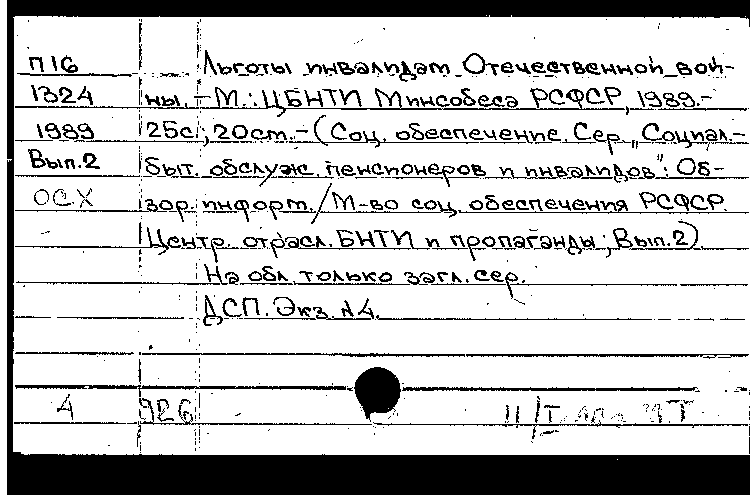 П16 Льготы инвалидам Отечественной вой-
1324 ны. – М.: ЦБНТИ Минсобеса РСФСР, 1989.-
1989 25с.; 20см. – (Соц. обеспечение. Сер. „Социал.-
Вып.2 быт. обслуж. пенсионеров и инвалидов": Об-
ОСХ зор. информ. / М-во соц. обеспечения РСФСР.
Центр. отрасл. БНТИ и пропаганды; Вып.2).
На обл. только загл. сер.
ДСП. Экз. №4.
4 926 11/I